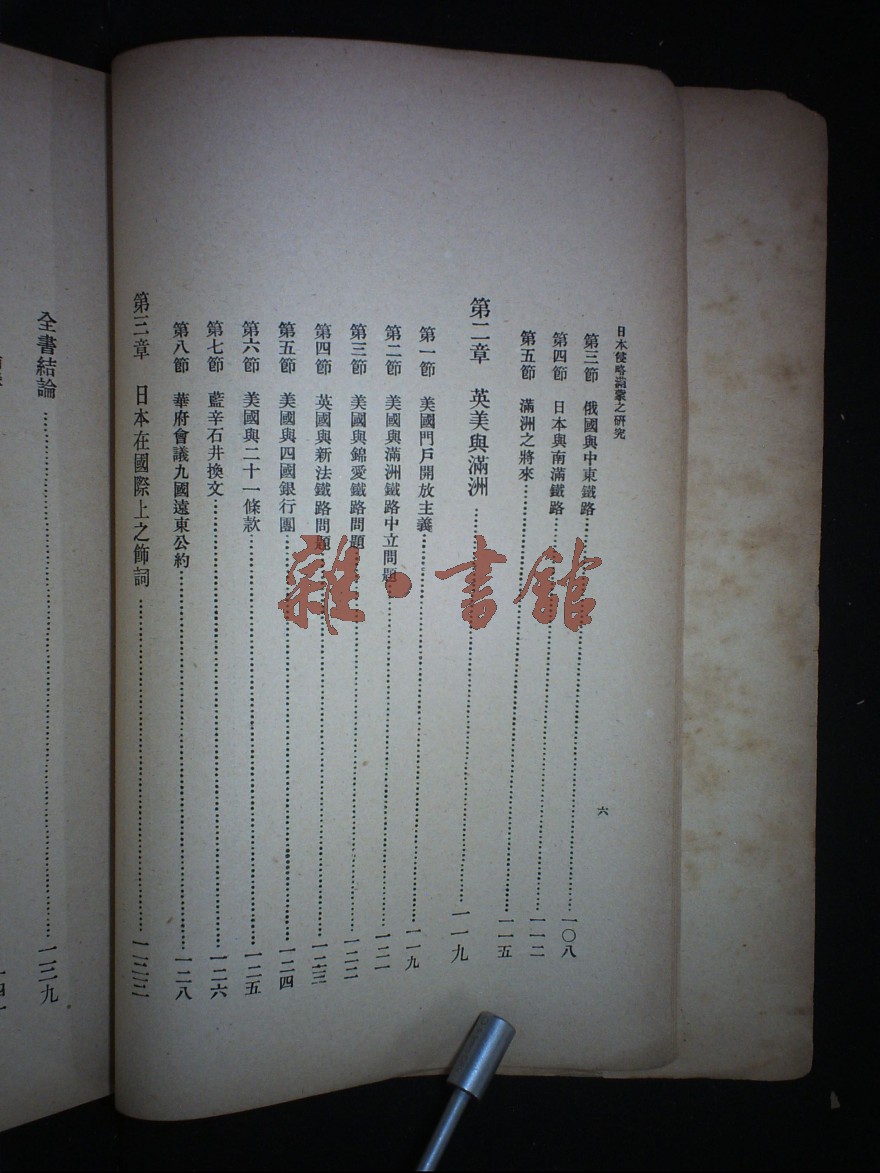 日本侵略滿蒙之研究
六
第三節 俄國與中東鐵路……一〇八
第四節 日本與南滿鐵路……一一二
第五節 滿洲之將來……一一五
第二章 英美與滿洲……一一九
第一節 美國門戶開放主義……一一九
第二節 美國與滿洲鐵路中立問題……一二一
第三節 美國與錦愛鐵路問題……一二二
第四節 英國與新法鐵路問題……一二三
第五節 美國與四國銀行團……一二四
第六節 美國與二十一條款……一二五
第七節 藍辛石井換文……一二六
第八節 華府會議九國遠東公約……一二八
第三章 日本在國際上之飾詞……一三三
全書結論……一三九
雜·書館